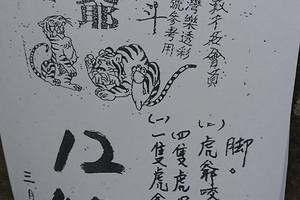 會員
灣樂透彩
號參考用
斗
爺
脚。
(二)虎爺咬
四隻虎
(一)一隻虎
12
三月